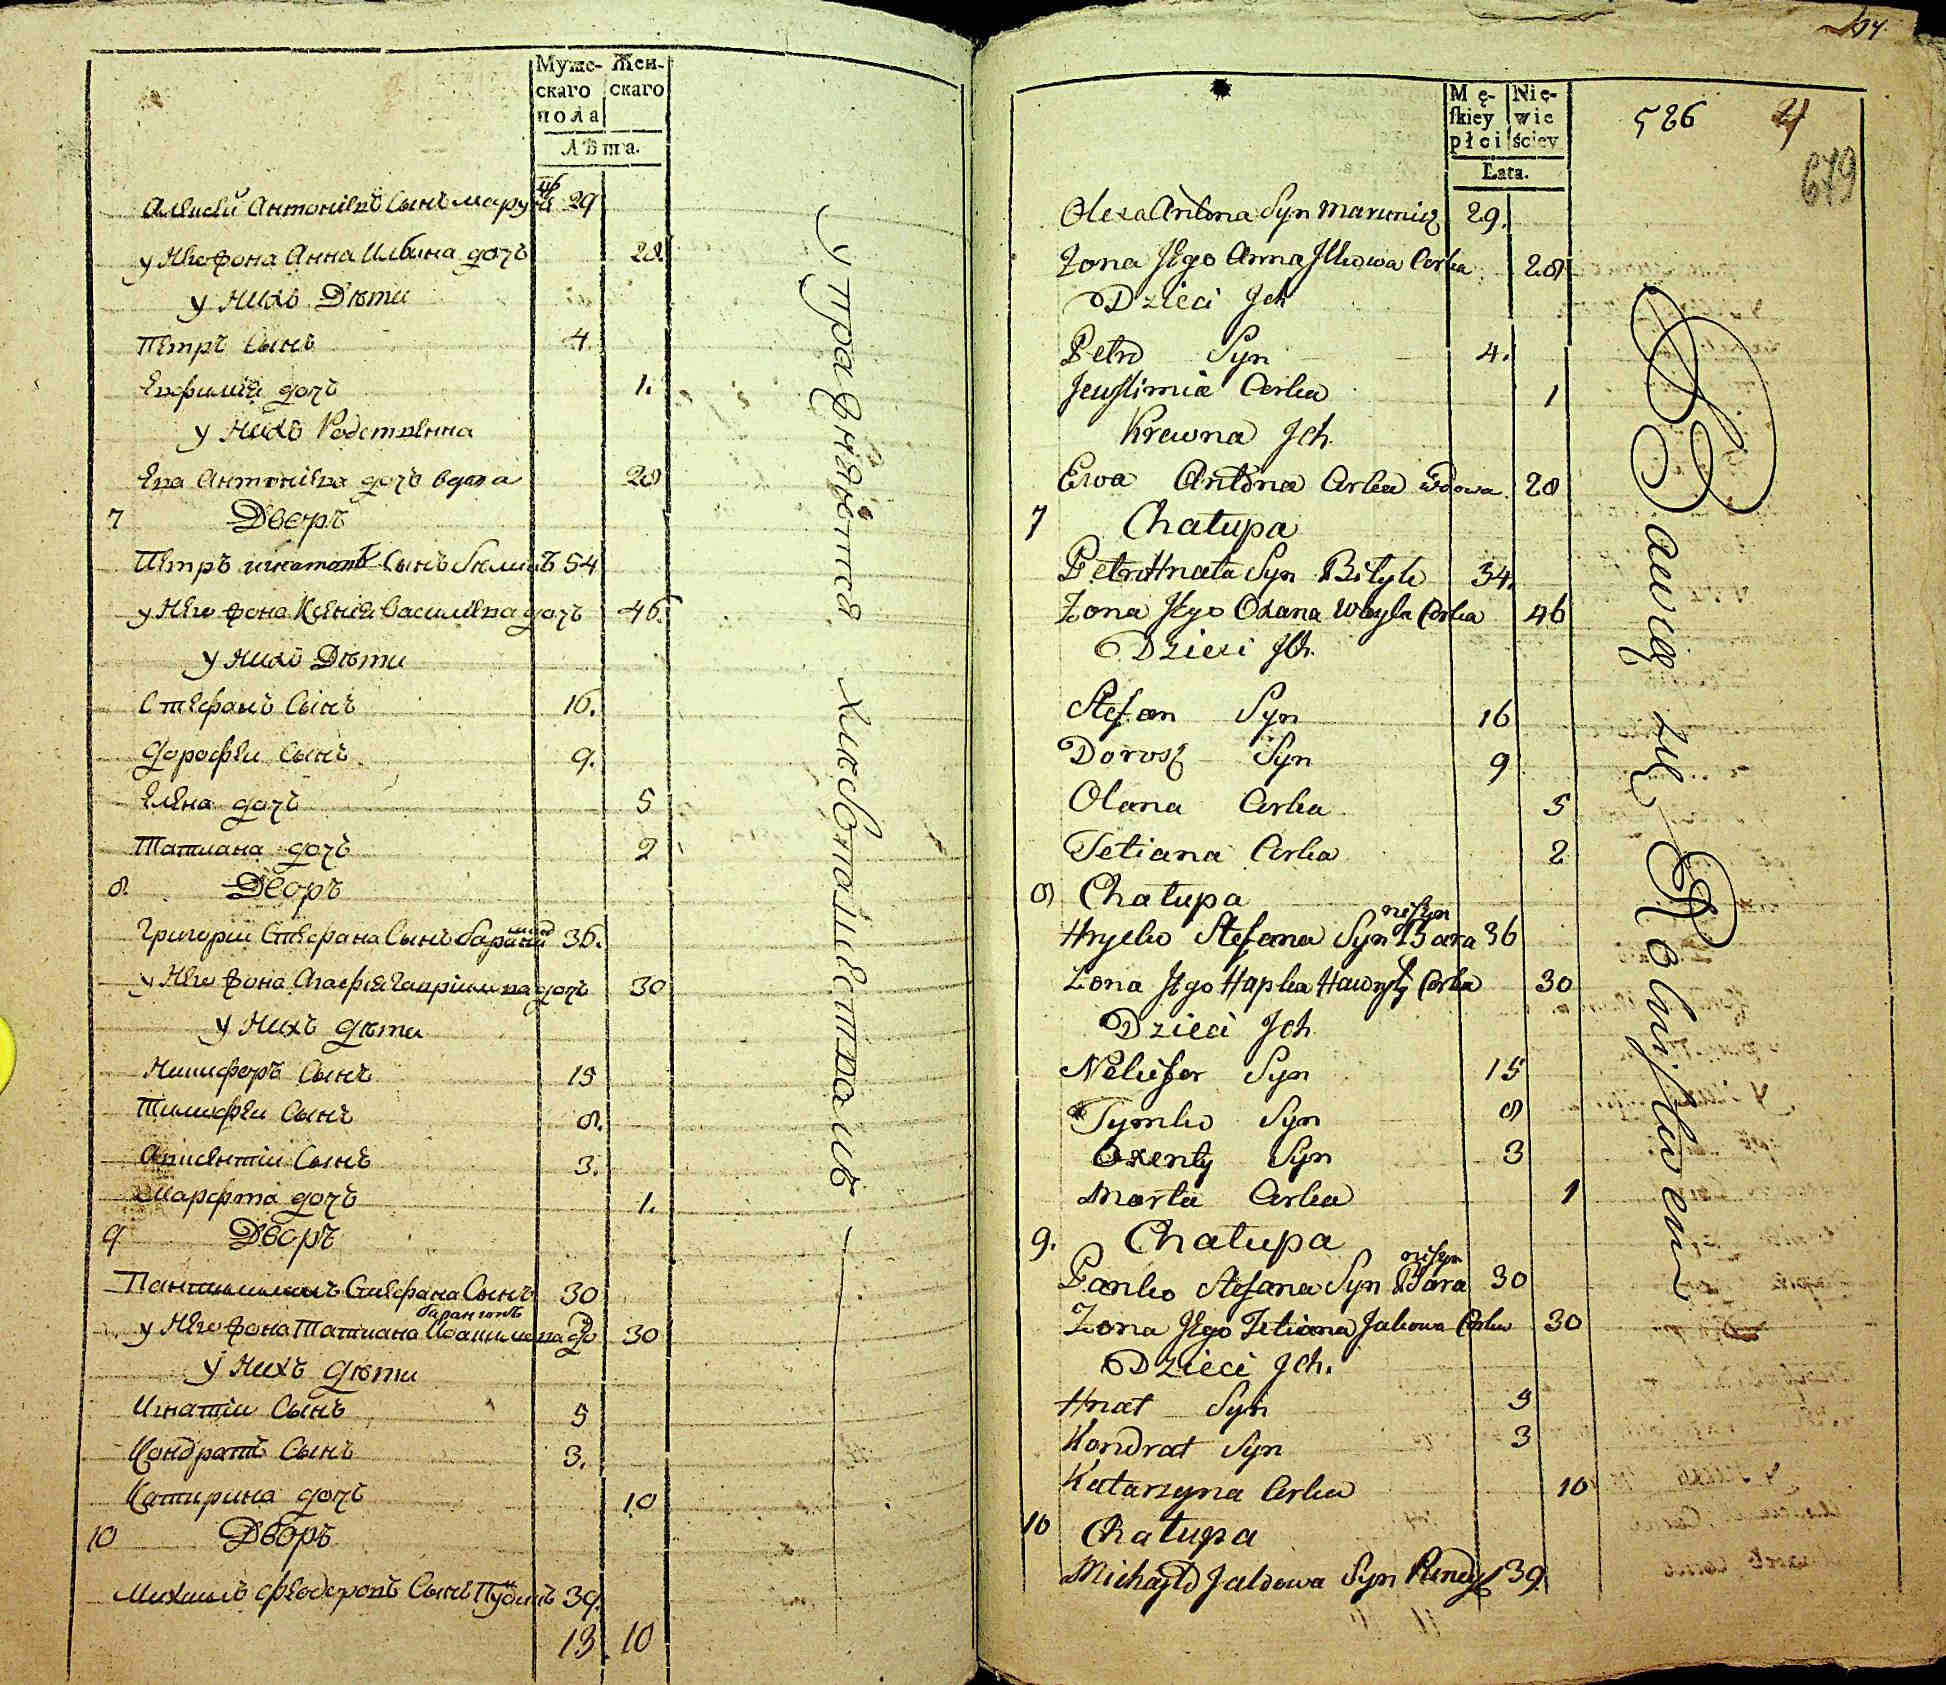 Муже- Жен-
скаго скаго
пола
Лѣта.
Алексѣй Антоновъ Сынъ 29
у Него Жона Анна Ильина дочь 28
у Нихъ Дѣти
Петръ Сынъ 4
Евфимия дочь 1.
у Нихъ Родственна
Ева Антонiева дочь вдова 28
7 Дворъ
Петръ Игнатовъ Сынъ 54
у Него Жона Ксения Василiева дочь 46.
у Нихъ Дѣти
Стефанъ Сынъ 16.
Дорофѣи Сынъ 9.
Елена дочь 5
Татиана дочь 2
8. Дворъ
Григорiи Стефана Сынъ 36.
у Него Жона Агафiя Гаврiилова дочь 30
у Нихъ дѣти
Никифоръ Сынъ 15
Тимофѣи Сынъ 8.
Авксентiи Сынъ 3.
Марфта дочь 1.
9 Дворъ
Пантилимонъ Стефана Сынъ 30
у Него Жона Татиана 30
у Нихъ дѣти
Игнатiи Сынъ 5
Кондратъ Сынъ 3.
Катирина дочь 10
10 Дворъ
Михаилъ Феодоровъ Сынъ 39.
13. 10
упражняется хлебопашествомъ
Mę- Nie-
skiey wie
płci ściey
Lata.
586 4
679
Olexa Antona Syn Marunicz 29.
Zona Jego Anna Jlkowa Corka 28
Dzieci Jch
Petro Syn 4.
Jewfimia Corka 1
Krewna Jch
Ewa Antona Corka Wdowa 28
7 Chałupa
Petro Hnata Syn Biłyk 54.
Zona Jego Oxana Wasyla Corka 46
Dzieci Jch.
Stefan Syn 16
Dorosz Syn 9
Olena Corka 5
Tetiana Corka 2
8 Chałupa
Hryćko Stefana Syn Baraniszyn 36
Zona Jego Hapka Hawryły Corka 30
Dzieci Jch
Nekifor Syn 15
Tymko Syn 8
Oxenty Syn 3
Marta Corka 1
9. Chałupa
Panko Stefana Syn Baraniszyn 30
Zona Jego Tetiana Jakowa Corka 30
Dzieci Jch.
Hnat Syn 5
Kondrat Syn 3
Katarzyna Corka 10
10 Chałupa
Michajło Syn 39.
Bawią się Rolnictwem